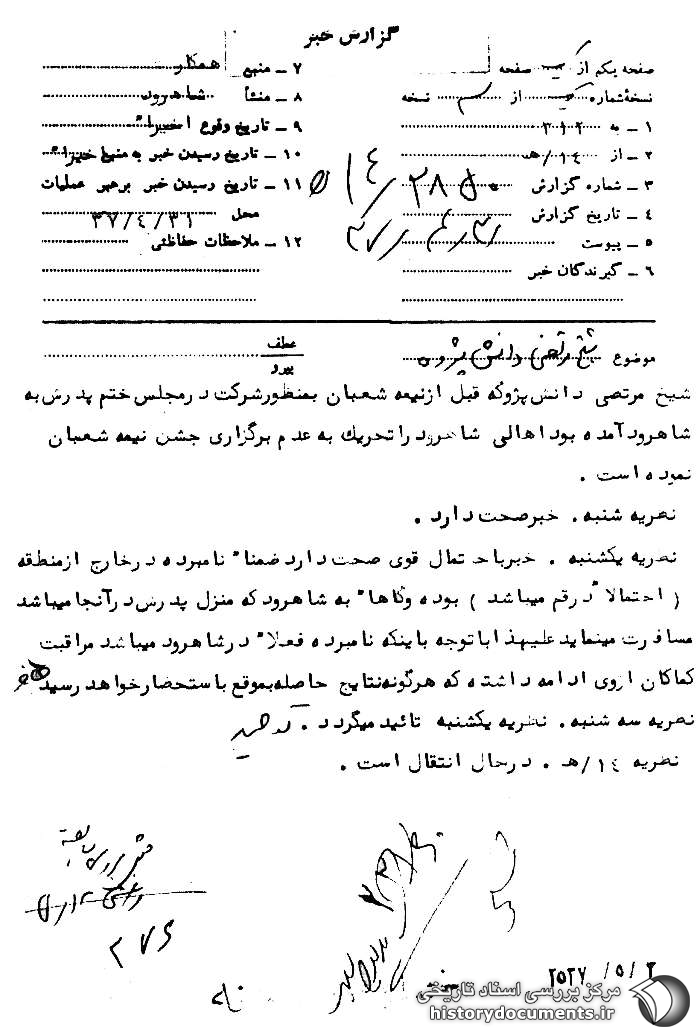 گزارش خبر
صفحه یکم از یک صفحه
نسخه شماره از نسخه
۱ - به ۳۱۲
۲ - از ۱۴/هـ
۳ - شماره گزارش
۴ - تاریخ گزارش
۵ - پیوست
۶ - گیرندگان خبر
۷ - منبع همکار
۸ - منشأ شاهرود
۹ - تاریخ وقوع اخیراً
۱۰ - تاریخ رسیدن خبر به منبع اخیراً
۱۱ - تاریخ رسیدن خبر برهبر عملیات
محل ۳۷/۴/۳۱
۱۲ - ملاحظات حفاظتی
موضوع شیخ مرتضی دانش پژوه
عطف
پیرو
شیخ مرتضی دانش پژوکه قبل ازنیمه شعبان بمنظورشرکت درمجلس ختم پدرش به
شاهرودآمده بوداهالی شاهرود راتحریك به عدم برگزاری جشن نیمه شعبان
نموده است .
نظریه شنبه . خبرصحت دارد .
نظریه یکشنبه . خبرباحتمال قوی صحت دارد ضمناً نامبرده درخارج ازمنطقه
( احتمالاً درقم میباشد ) بوده وگاهاً به شاهرود که منزل پدرش درآنجا میباشد
مسافرت مینماید علیهذا باتوجه باینکه نامبرده فعلاً درشاهرود میباشد مراقبت
کماکان ازوی ادامه داشته که هرگونه نتایج حاصله بموقع باستحضارخواهد رسید
نظریه سه شنبه . نظریه یکشنبه تائید میگردد .
نظریه ۱۴/هـ . درحال انتقال است .
۲۷۶
۲۵۳۷/۵/۲
مرکز بررسی اسناد تاریخی
historydocuments.ir